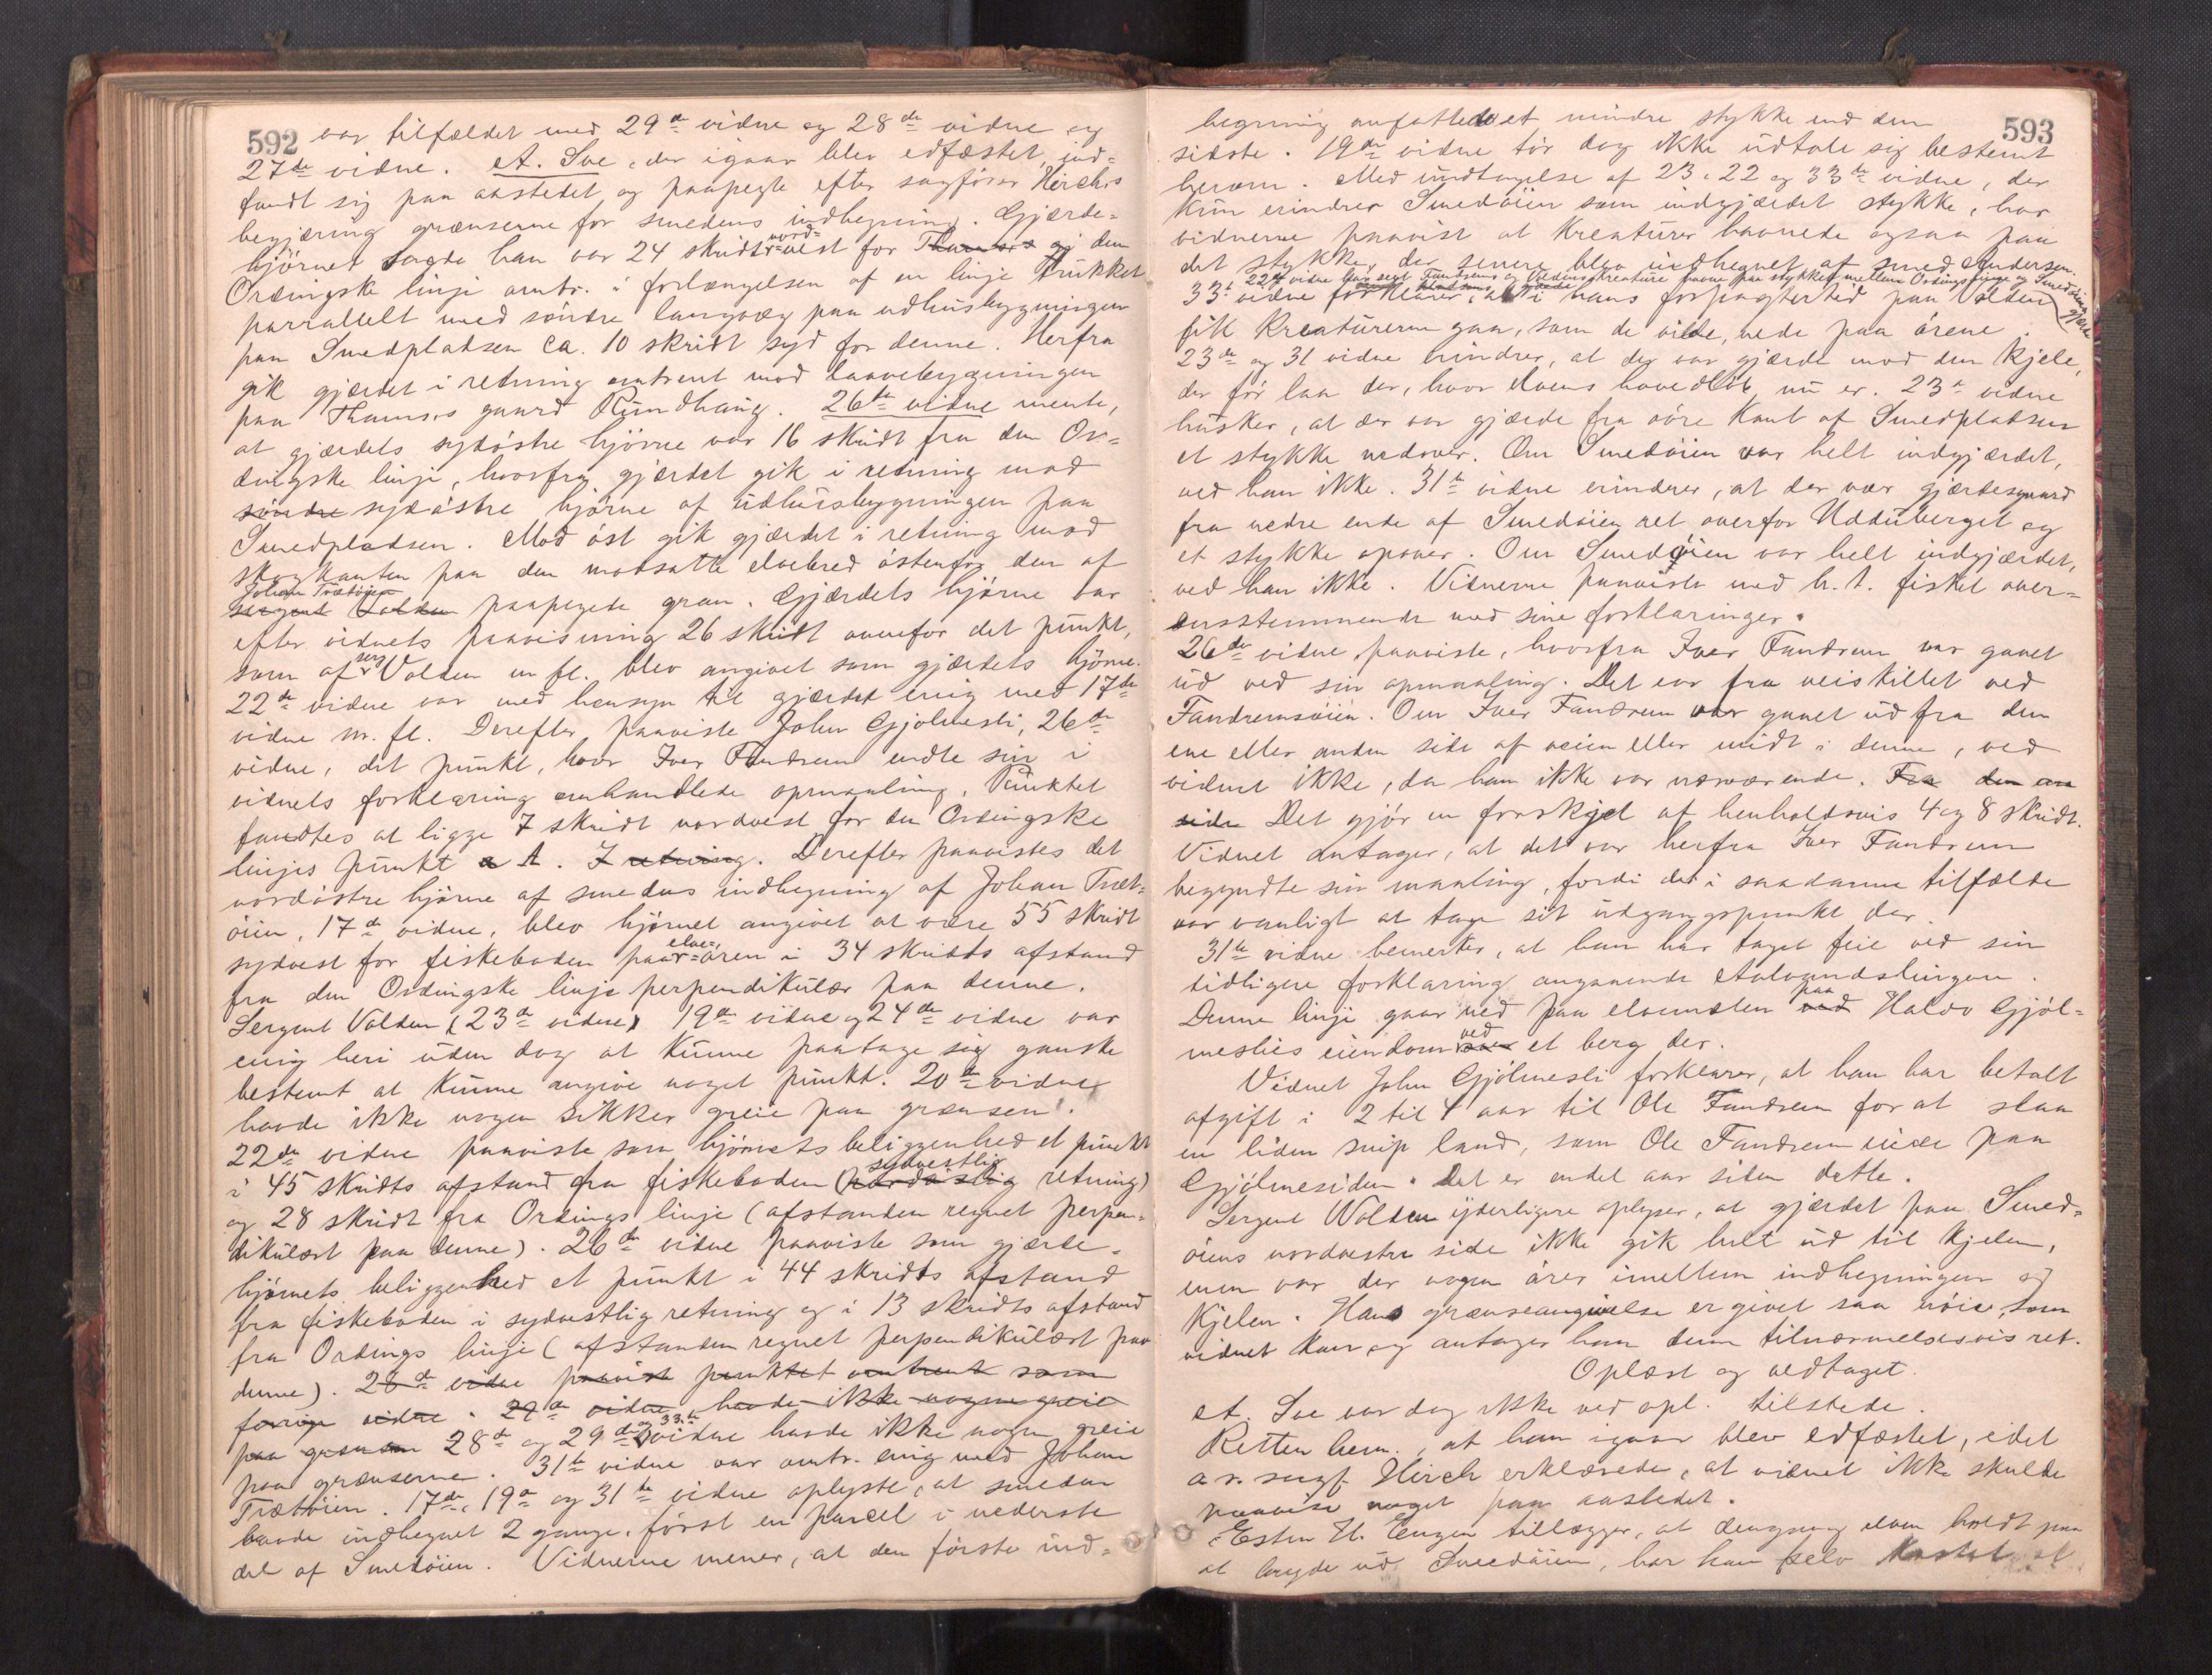 592
var tilfældet med 29de vidne og 28de vidne og
27de vidne. A. Soe, der igaar blev edfæstet, ind-
fandt sig paa aastedet og paapegte efter sagfører Hirchs
begjæring grænserne for smedens indhegning. Gjærde-
hjørnet sagde han var 24 skridt nord-vest for Thamses gj den
Ordingske linje omtr. i forlængelsen af en linje trukket
parrallelt med søndre langvæg paa udhusbygningen
paa Smedpladsen ca. 10 skridt syd for denne. Herfra
gik gjærdet i retning omtrent mod laavebygningen
paa Thamses gaard Rundhaug. 26de vidne mente,
at gjærdets sydøstre hjørne var 16 skridt fra den Or-
dingske linje, hvorfra gjærdet gik i retning mod
søndre sydøstre hjørne af udhusbygningen paa
Smedpladsen. Mod øst gik gjærdet i retning mod
skogkanten paa den modsatte elvebred østenfor den af
Johan Trætøien
sergent Volden paapegede gran. Gjærdets hjørne var
efter vidnets paavisning 26 skridt ovenfor det punkt,
som af serg Volden m fl. blev angivet som gjærdets hjørne.
22de vidne var med hensyn til gjærdet enig med 17de
vidne m. fl. Derefter paaviste John Gjølmesli, 26de
vidne, det punkt, hvor Iver Fandrem endte sin i
vidnets forklaring omhandlede opmaaling. Punktet
fandtes at ligge 7 skridt nordvest for den Ordingske
linjes punkt a A. I retning. Derefter paavistes det
nordøstre hjørne af smedens indhegning af Johan Træt-
øien, 17de vidne, blev hjørnet angivet at være 55 skridt
sydvest for fiskeboden paa elve-øren i 34 skridts afstand
fra den Ordingske linje perpendikulær paa denne.
Sergent Volden (23de vidne) 19de vidne og 24de vidne var
enig heri uden dog at kunne paatage sig ganske
bestemt at kunne angive noget punkt. 20de vidne
havde ikke nogen sikker greie paa grænsen.
22de vidne paaviste som hjørnets beliggenhed et punkt
i 45 skridts afstand fra fiskeboden (nordøstlig sydvestlig retning)
og 28 skridt fra Ordings linje (afstanden regnet perpen-
dikulært paa denne). 26de vidne paaviste som gjærde-
hjørnets beliggenhed et punkt i 44 skridts afstand
fra fiskeboden i sydvestlig retning og i 13 skridts afstand
fra Ordings linje (afstanden regnet perpendikulært paa
denne). 28de vidne paaviste punktet omtrent som
forrige vidne. 29de vidne havde ikke nogen greie
paa grænsen 28de og 29de og 33te vidne havde ikke nogen greie
paa grænserne. 31te vidne var omtr. enig med Johan
Trætøien. 17de, 19de og 31te vidne oplyste, at smeden
havde indhegnet 2 gange, først en parcel i nederste
del af Smedøien. Vidnerne mener, at den første ind-
593
hegning omfattede et mindre stykke end den
sidste. 19de vidne tør dog ikke udtale sig bestemt
herom. Med undtagelse af 23, 22 og 33te vidne, der
kun erindrer Smedøien som indgjærdet stykke, har
vidnerne paavist at kreaturer havnede ogsaa paa
det stykke, der senere blev indhegnet af smed Andersen.
22de vidne har seet Fandrems og Voldens kreature havne paa stykket mellem Ordings linje og Smedøiens gjærde
33te vidne forklarer, at i hans forpagtertid paa Volden
fik kreaturerne gaa, som de vilde, nede paa ørene.
23de og 31 vidne erindrer, at der var gjærde mod den kjele,
der før laa der, hvor elvens hovedløb nu er. 23de vidne
husker, at der var gjærde fra øvre kant af Smedpladsen
et stykke nedover. Om Smedøien var helt indgjærdet,
ved han ikke. 31te vidne erindrer, at der var gjærdesgaard
fra nedre ende af Smedøien ret overfor Udduberget og
et stykke opover. Om Smedøien var helt indgjærdet,
ved han ikke. Vidnerne paaviste med h. t. fisket over-
ensstemmende med sine forklaringer.
26de vidne paaviste, hvorfra Iver Fandrem var gaaet
ud ved sin opmaaling. Det var fra veiskillet ved
Fandremsøien. Om Iver Fandrem var gaaet ud fra den
ene eller anden side af veien eller midt i denne, ved
vidnet ikke, da han ikke var nærværende. Fra den ene
side Det gjør en forskjel af henholdsvis 4 og 8 skridt.
Vidnet antager, at det var herfra Iver Fandrem
begyndte sin maaling, fordi det i saadanne tilfælde
var vanligt at tage sit udgangspunkt der.
31te vidne bemerker, at han har taget feil ved sin
tidligere forklaring angaaende Aalvundslinjen.
Denne linje gaar ned paa elvemælen ved paa Haldo Gjøl-
meslies eiendom ved et berg der.
Vidnet John Gjølmesli forklarer, at han har betalt
afgift i 2 til 4 aar til Ole Fandrem for at slaa
en liden snip land, som Ole Fandrem eiede paa
Gjølmesiden. Det er endel aar siden dette.
Sergent Volden yderligere oplyser, at gjærdet paa Smed-
øiens nordvestre side ikke gik helt ud til kjelen,
men var der nogen ører imellem indhegningen og
kjelen. Hans grænseangivelse er givet saa nøie, som
vidnet kan og antager han denn tilnærmelsesvis ret.
Oplæst og vedtaget.
A. Soe var dog ikke ved opl. tilstede.
Retten bem., at han igaar blev edfæstet, idet
o.r. sagf. Hirch erklærede, at vidnet ikke skulde
paavise noget paa aastedet.
Esten H. Engen tillægger, at dengang elven holdt paa
at bryde ud Smedøien, har han selv